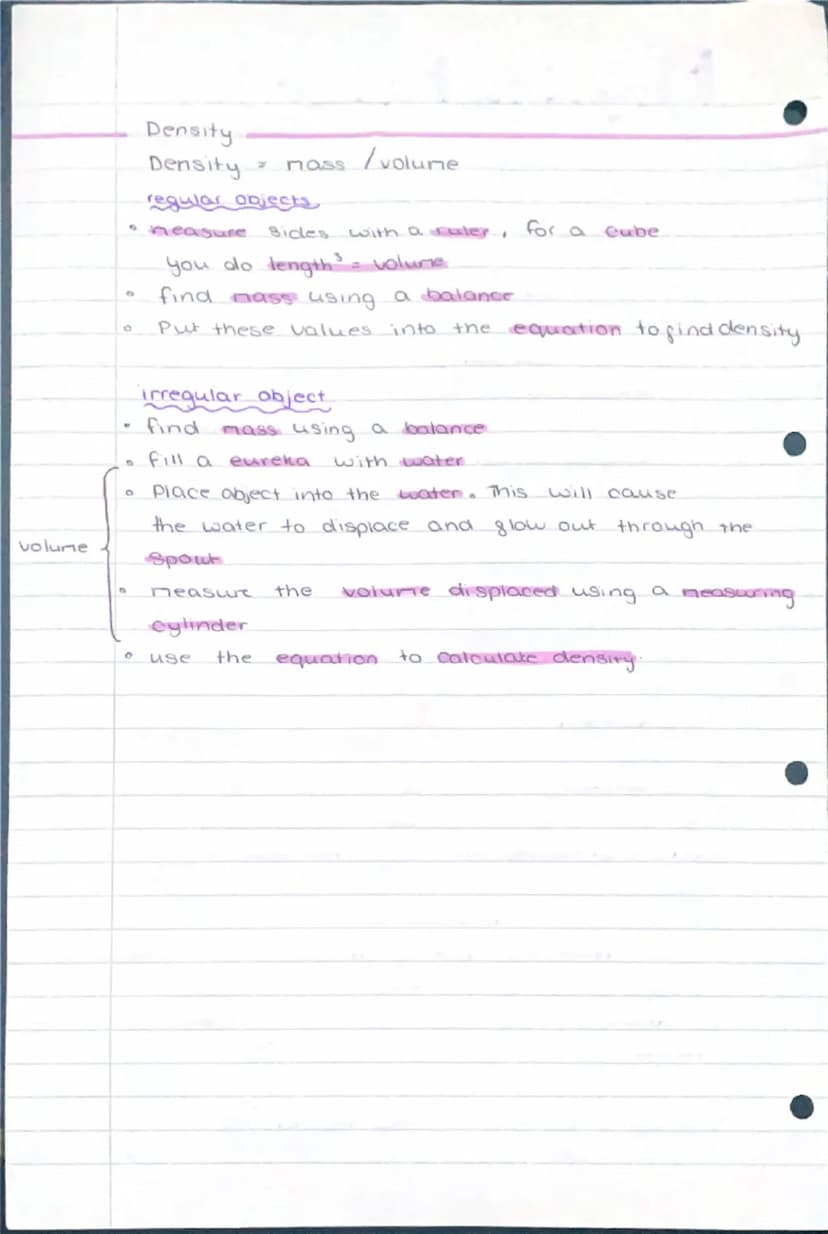 Density
Density = mass / volume
regular objects
• measure sides with a ruler, for a cube
you do length³ = volume
• find mass using a balance
• Put these values into the equation to find density
irregular object
• find mass using a balance
• fill a eureka with water
• Place object into the water. This will cause
the water to displace and flow out through the
spout
volume
• measure the volume displaced using a measuring
cylinder
• use the equation to calculate density.